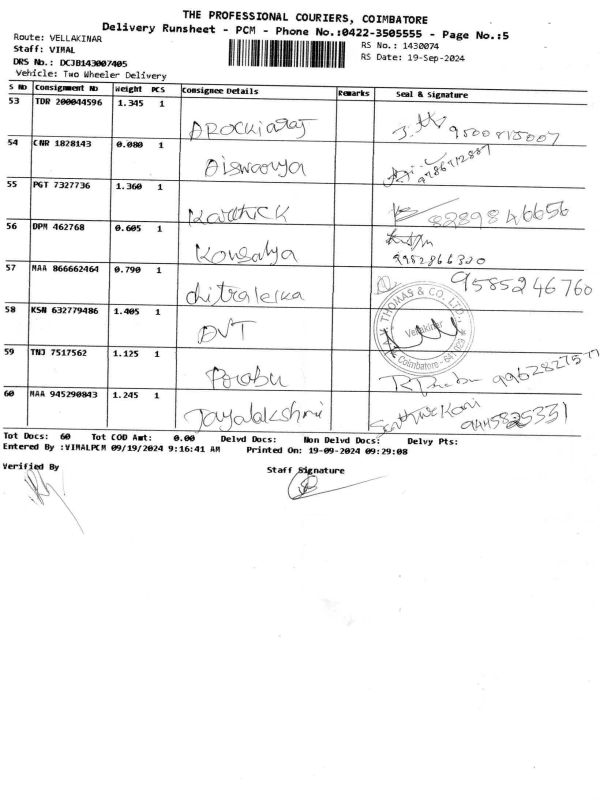 THE PROFESSIONAL COURIERS, COIMBATORE
Delivery Runsheet - PCM - Phone No.:0422-3505555 - Page No.:5
Route: VELLAKINAR RS No.: 1430074
Staff: VIMAL RS Date: 19-Sep-2024
DRS No.: DCJB143007405
Vehicle: Two Wheeler Delivery
S NO Consignment No Weight PCS Consignee Details Remarks Seal & Signature
53 TDR 200044596 1.345 1 AROCKIARAJ 9500815007
54 CNR 1828143 0.080 1 Aiswarya
55 PGT 7327736 1.360 1 Karthick 8289846656
56 DPM 462768 0.605 1 Kousalya 9952866320
57 MAA 866662464 0.790 1 chitraleka 9585246760
58 KSN 632779486 1.405 1 AVT THOMAS & CO. LTD. Vellakinar Coimbatore - 641 029
59 TNJ 7517562 1.125 1 Prabu 9962827577
60 MAA 945290843 1.245 1 Jayalakshmi 9445825331
Tot Docs: 60 Tot COD Amt: 0.00 Delvd Docs: Non Delvd Docs: Delvy Pts:
Entered By :VIMALPCM 09/19/2024 9:16:41 AM Printed On: 19-09-2024 09:29:08
Verified By Staff Signature